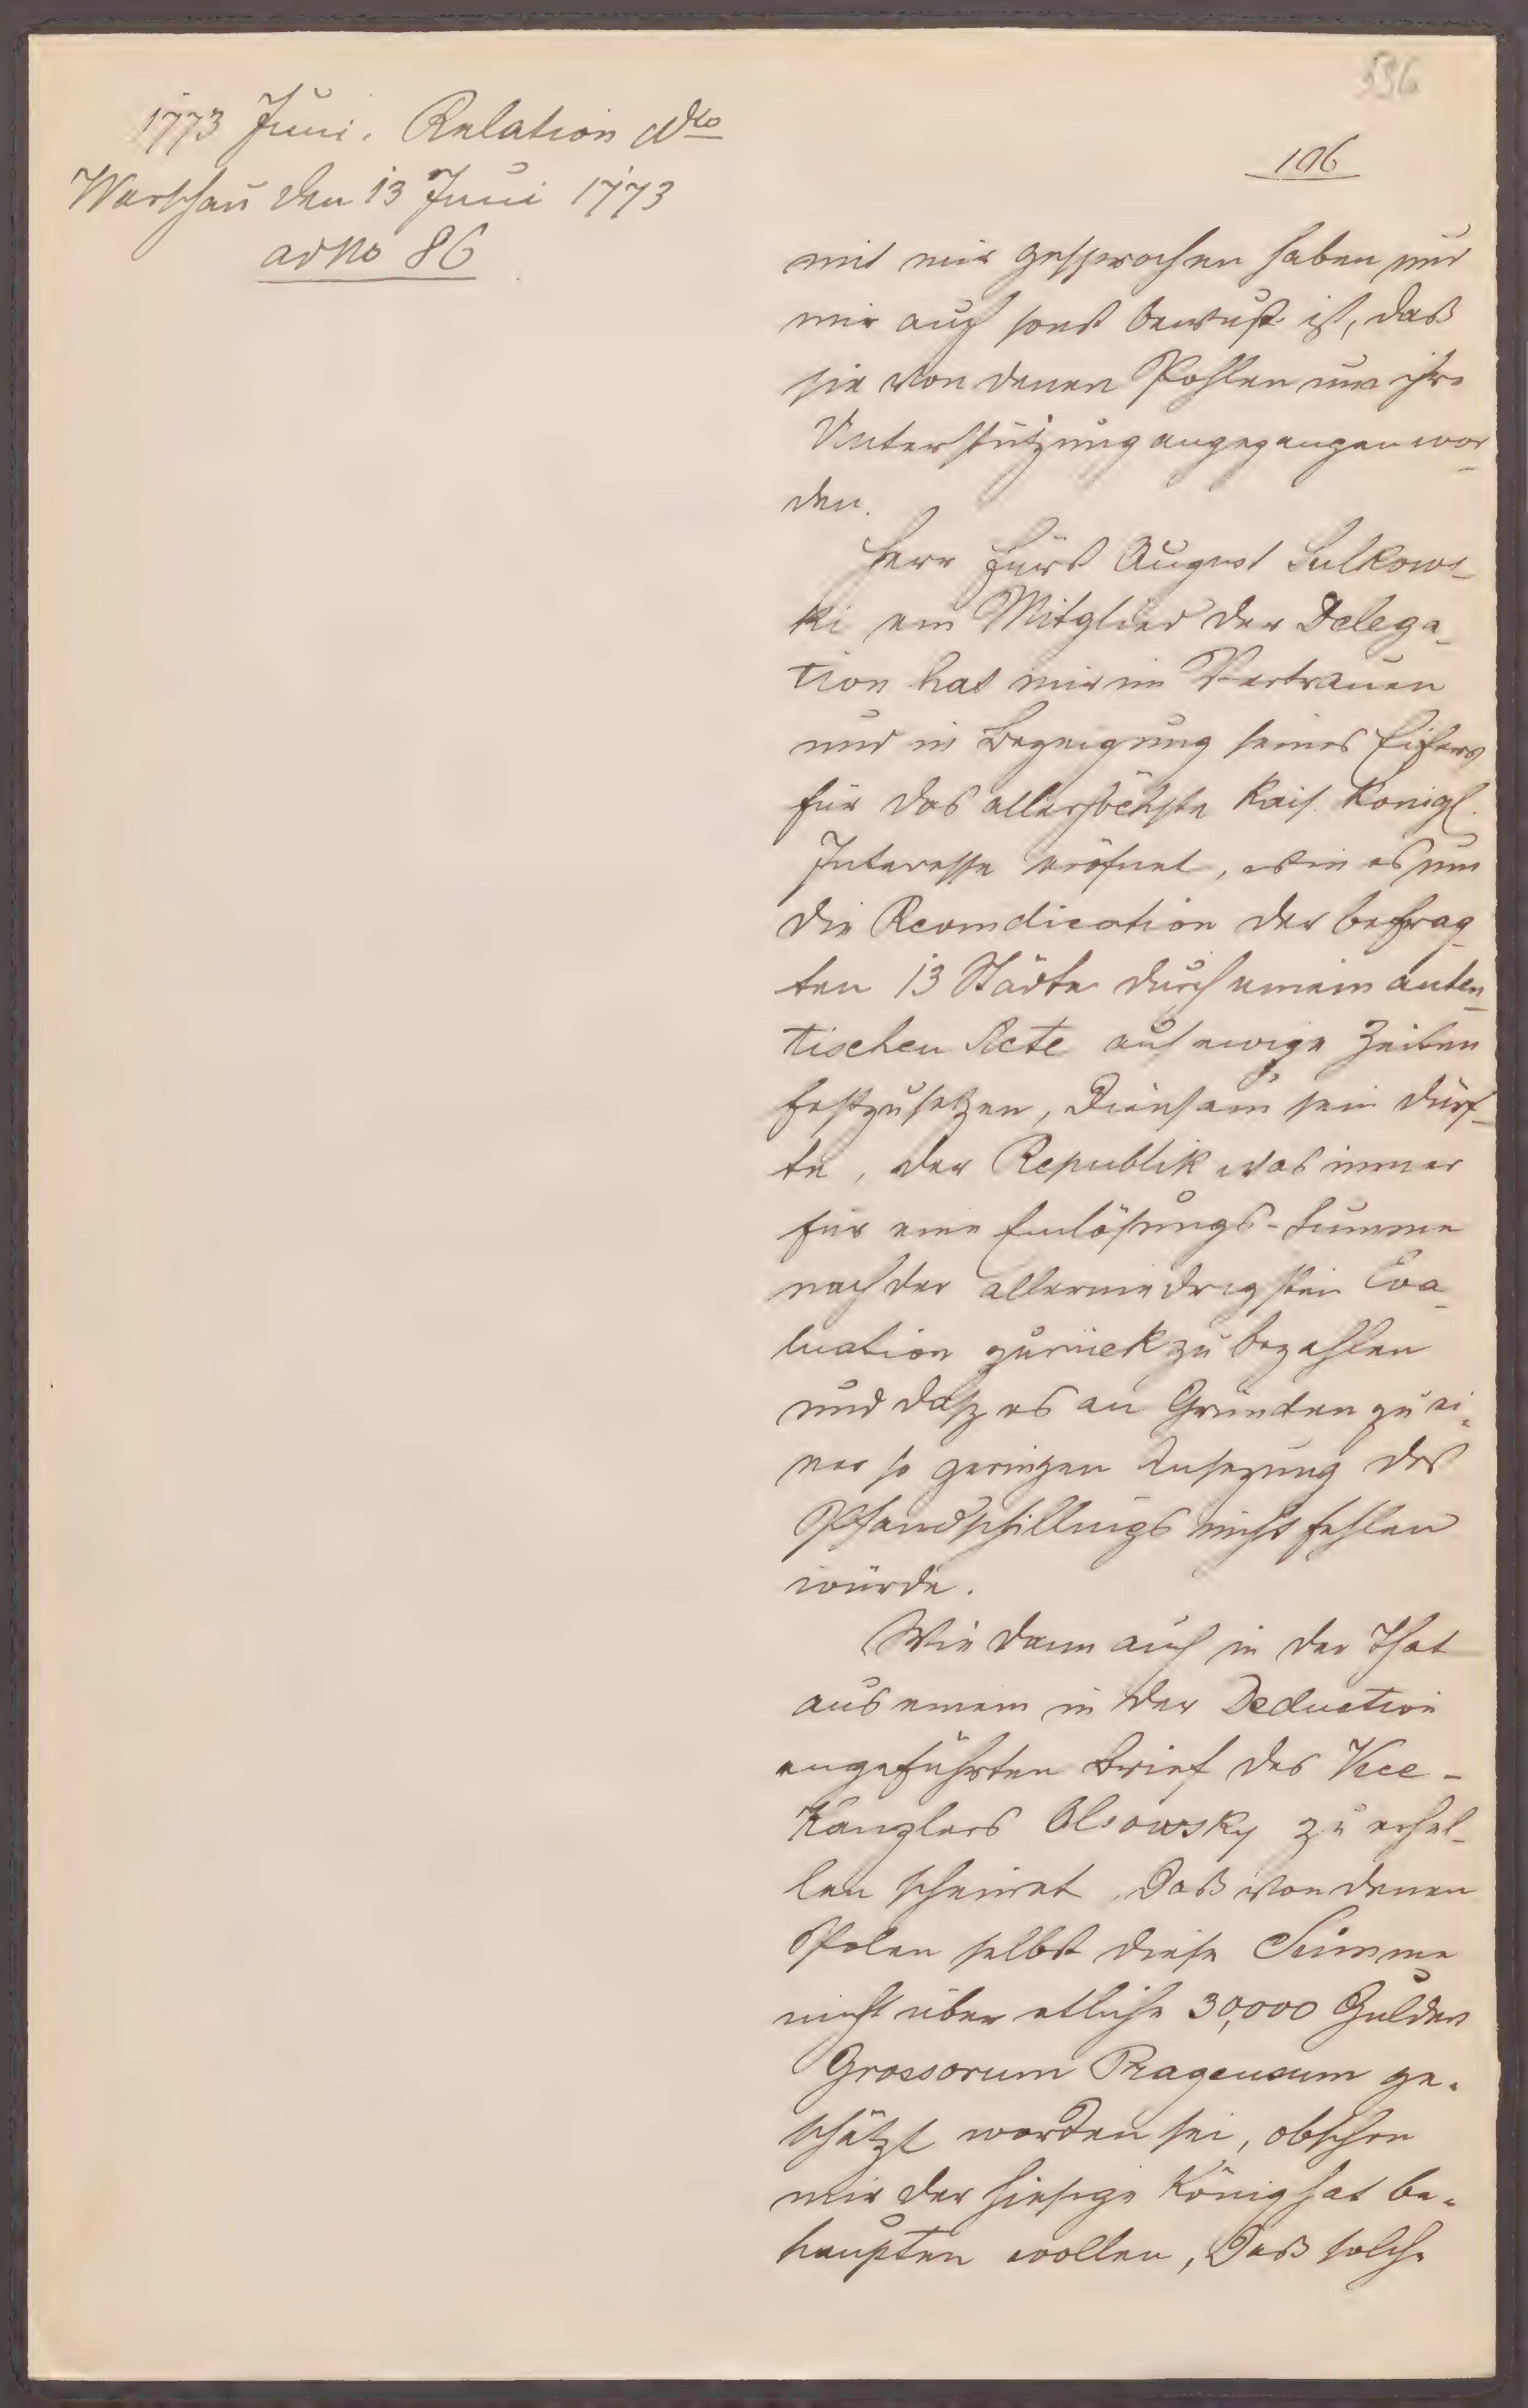 536
1773 Juni. Relation dto
Warschau den 13 Juni 1773
ad No 86
106
mit mir gesprochen haben und
mir auch sonst bewust ist, daß
sie von denen Pohlen um ihre
Unterstützung angegangen wor-
den.
Herr Fürst August Sulkows-
ki ein Mitglied der Delega-
tion hat mir im Vertrauen
und in Bezeigung seines Eifers
für das allerhöchste Kais. Königl.
Interesse eröfnet, wie es um
die Revindication der befrag-
ten 13 Städte durch einem auten-
tischen Acte auf ewige Zeiten
festzusetzen, diensam sein dürf-
te, der Republik was immer
für eine Einlösungs-Summe
nach der allerniedrigsten Eva-
luation zurück zu bezahlen
und daß es an Gründen zu ei-
ner so geringen Ansezung des
Pfandschillings nicht fehlen
würde.
Wie dann auch in der That
aus einem in der Deduction
angeführten Brief des Vice-
Kanzlers Olsowsky zu erhel-
len scheinet, daß von denen
Polen selbst diese Summe
nicht über etliche 30,000 Gulden
Grossorum Pragensium ge-
schätzt worden sei, obschon
mir der hiesige König hat be-
haupten wollen, daß solche